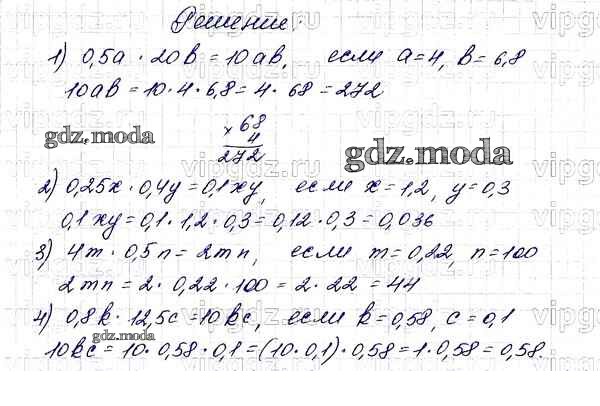 Решение:
1) 0,5a · 20b = 10ab, если a=4, b=6,8
10ab = 10·4·6,8 = 4·68 = 272
× 68
4
272
gdz.moda
gdz.moda
2) 0,25x · 0,4y = 0,1xy, если x=1,2, y=0,3
0,1xy = 0,1·1,2·0,3 = 0,12·0,3 = 0,036
3) 4m · 0,5n = 2mn, если m=0,22, n=100
2mn = 2·0,22·100 = 2·22 = 44
4) 0,8k · 12,5c = 10kc, если k=0,58, c=0,1
gdz.moda
10kc = 10·0,58·0,1 = (10·0,1)·0,58 = 1·0,58 = 0,58.